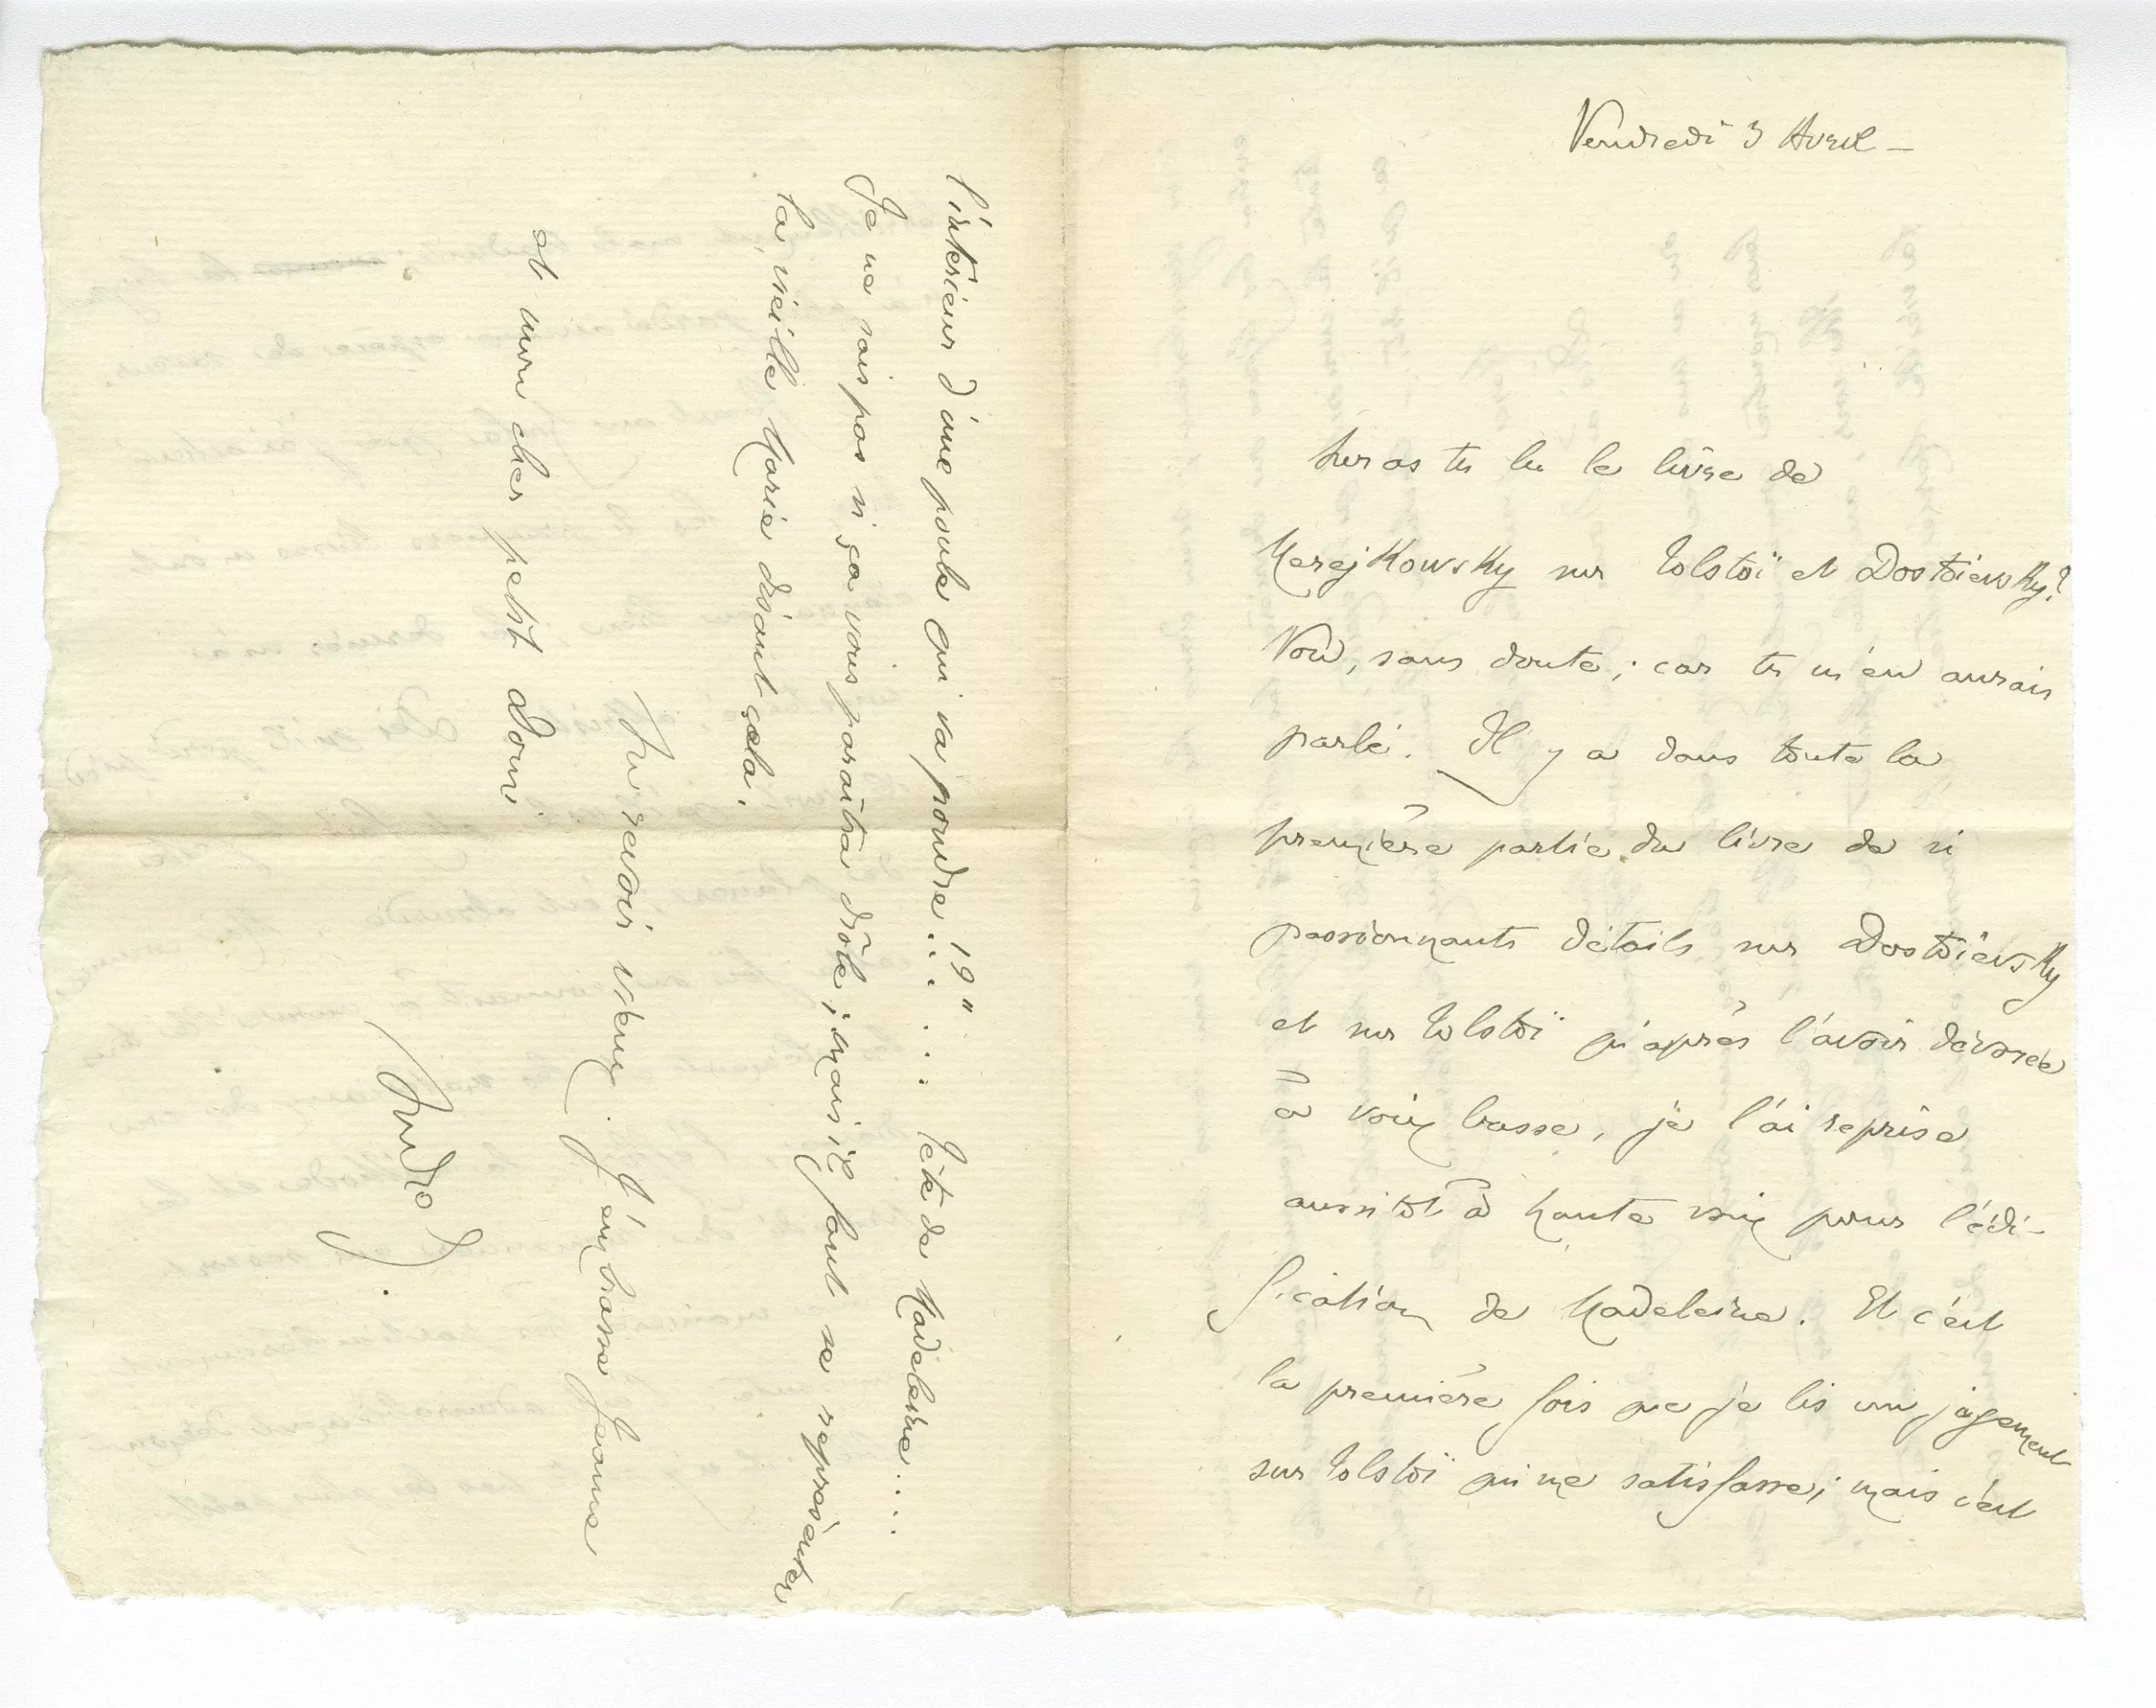 Vendredi 3 Avril —
Auras tu lu le livre de
Merejkowsky sur Tolstoï et Dostoïevsky?
Non, sans doute; car tu m'en aurais
parlé. Il y a dans toute la
première partie du livre de si
passionnants détails sur Dostoïevsky
et sur Tolstoï qu'après l'avoir dévorée
à voix basse, je l'ai reprise
aussitôt à haute voix pour l'édi-
fication de Madeleine. Et c'est
la première fois que je lis un jugement
sur Tolstoï qui me satisfasse; mais c'est
l'intérieur d'une poule qui va pondre!!" .... Tête de Madeleine....
Je ne sais pas si ça vous paraîtra drôle; mais il faut se représenter
la vieille Marie disant cela.
Au revoir vieux. J'embrasse Jeanne
et mon cher petit Dom.
André G.